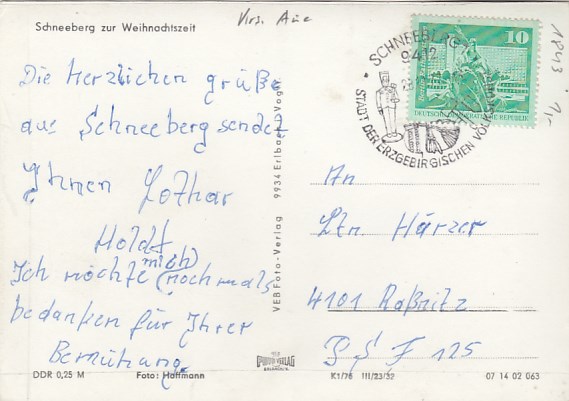 Vers. Aue
Schneeberg zur Weihnachtszeit
Die Herzlichen grüße
aus Schneeberg sendet
Ihnen Lothar
Holdt
Ich möchte mich (nochmals
bedanken für Ihrer
Bemühung.
DDR 0,25 M
Foto: Hoffmann
VEB Foto-Verlag 9934 Erlbach i. Vogtl.
SCHNEEBERG 2
9412
STADT DER ERZGEBIRGISCHEN
10
DEUTSCHE DEMOKRATISCHE REPUBLIK
1843
An
Ltn. Härzer
4101 Raßnitz
PSF 125
K1/76 III/23/32
07 14 02 063